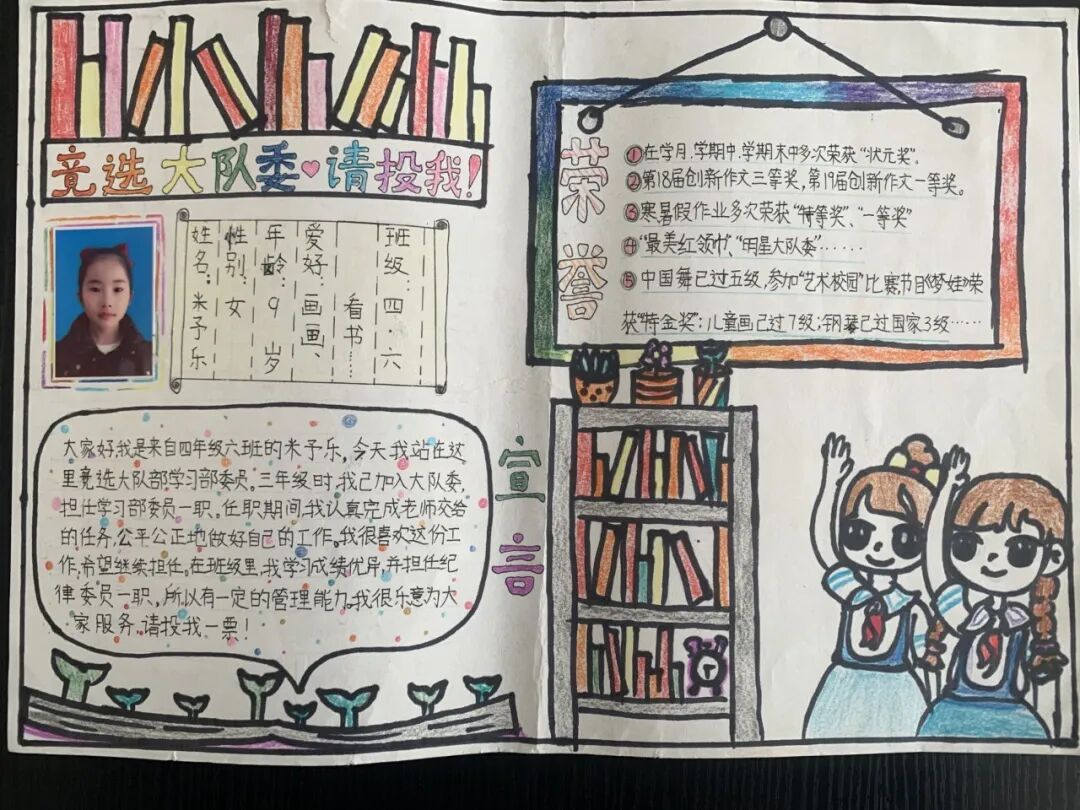 竞选大队委请投我!
姓名:米予乐
性别:女
年龄:9岁
爱好:画画、
看书……
班级:四·六
荣誉
①在学月.学期中.学期末中多次荣获“状元奖”.
②第18届创新作文三等奖,第19届创新作文一等奖。
③寒暑假作业多次荣获“特等奖”、“一等奖”
④“最美红领巾”、“明星大队委”……
⑤中国舞已过五级,参加“艺术校园”比赛,节目《梦娃》荣
获“特金奖”;儿童画已过7级;钢琴已过国家3级……
宣言
大家好,我是来自四年级六班的米予乐,今天我站在这
里竞选大队部学习部委员。三年级时,我已加入大队委,
担任学习部委员一职。任职期间,我认真完成老师交给
的任务,公平公正地做好自己的工作。我很喜欢这份工
作,希望继续担任。在班级里,我学习成绩优异,并担任纪
律委员一职,所以有一定的管理能力。我很乐意为大
家服务.请投我一票!